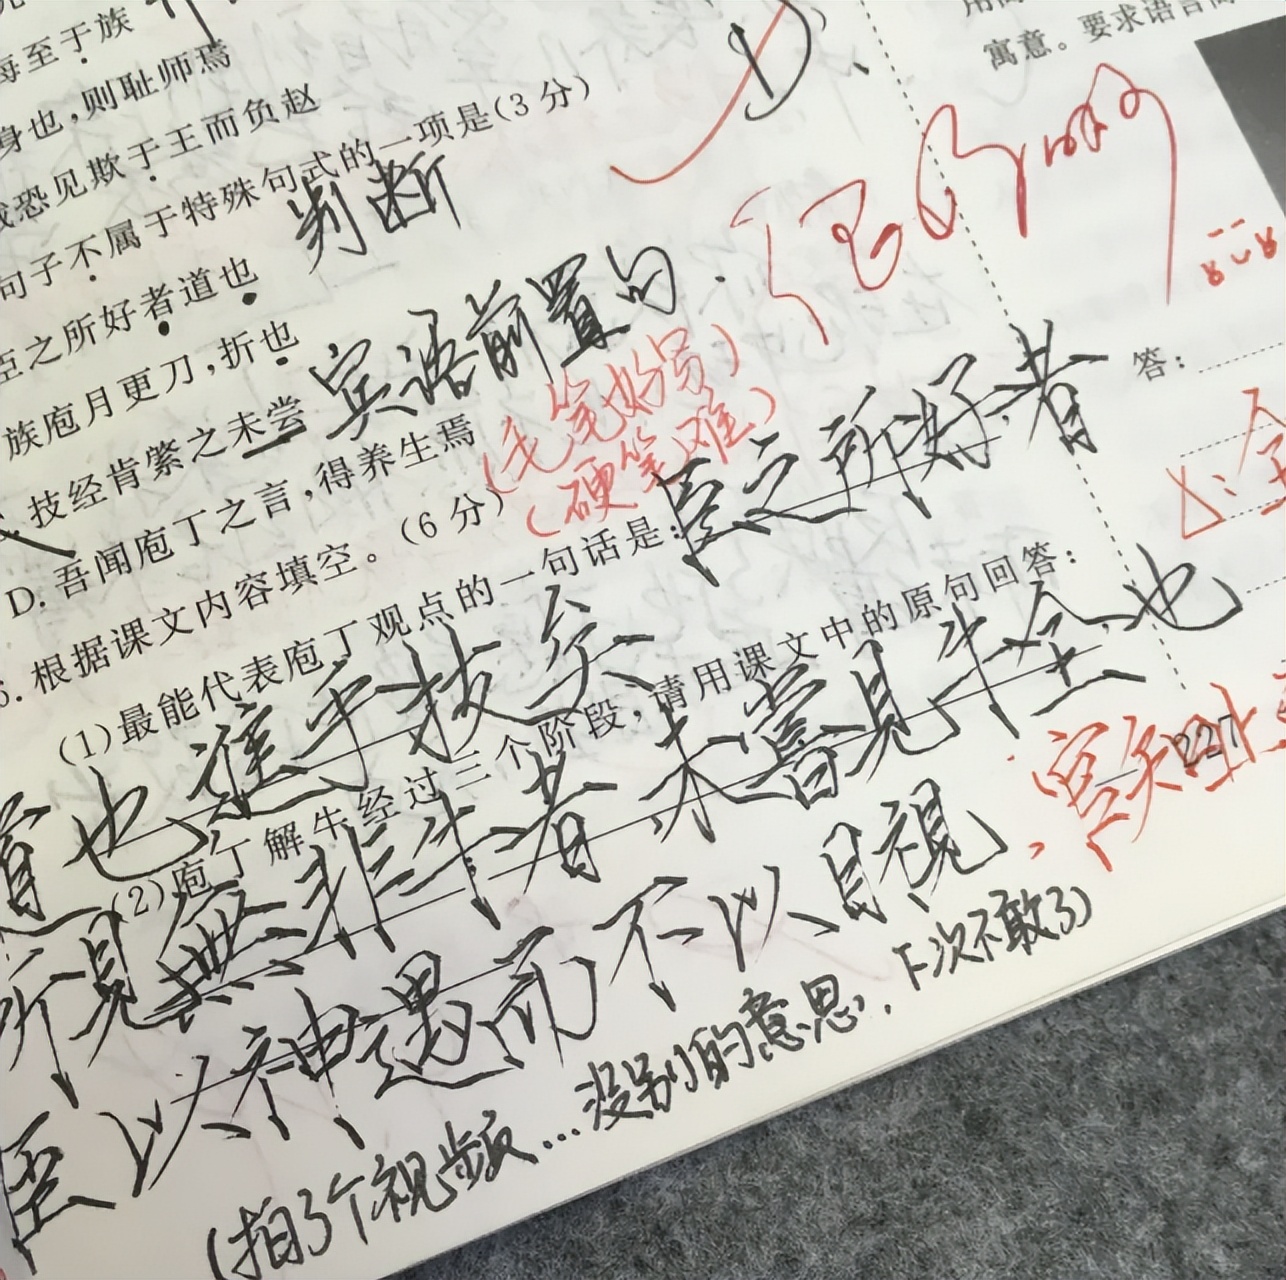 每至于族
D、
身也,则耻师焉
用简
寓意。要求语言简
诚恐见欺于王而负赵
句子不属于特殊句式的一项是(3分)
判断
臣之所好者道也
族庖月更刀,折也
宾语前置句.
技经肯綮之未尝
(毛笔好学)
(硬笔难)
答:
D.吾闻庖丁之言,得养生焉
根据课文内容填空。(6分)
(1)最能代表庖丁观点的一句话是:臣之所好者
道也進乎技矣
(2)庖丁解牛经过三个阶段,请用课文中的原句回答:
所見無非牛者 未嘗見牛全也
227
臣以神遇而不以目視
(拍了个视频...没别的意思,下次不敢了)